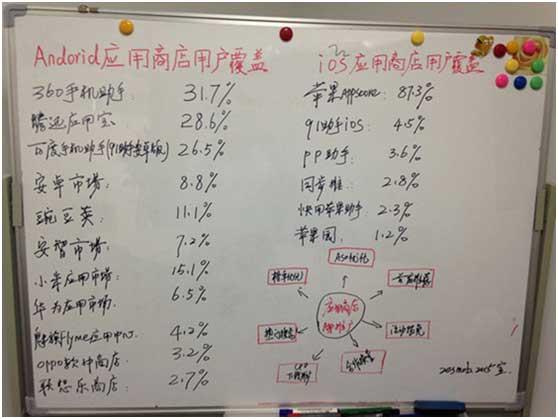 Andorid应用商店用户覆盖
360手机助手: 31.7%
腾讯应用宝 28.6%
百度手机助手(91助手安卓版) 26.5%
安卓市场: 8.8%
豌豆荚: 11.1%
安智市场: 7.2%
小米应用市场: 15.1%
华为应用市场: 6.5%
魅族Flyme应用中心: 4.2%
oppo软件商店: 3.2%
联想乐商店: 2.7%
iOS应用商店用户覆盖
苹果Appstore: 87.3%
91助手iOS: 4.5%
pp助手: 3.6%
同步推: 2.8%
快用苹果助手: 2.3%
苹果园: 1.2%
ASO优化
首页推荐
应用商店